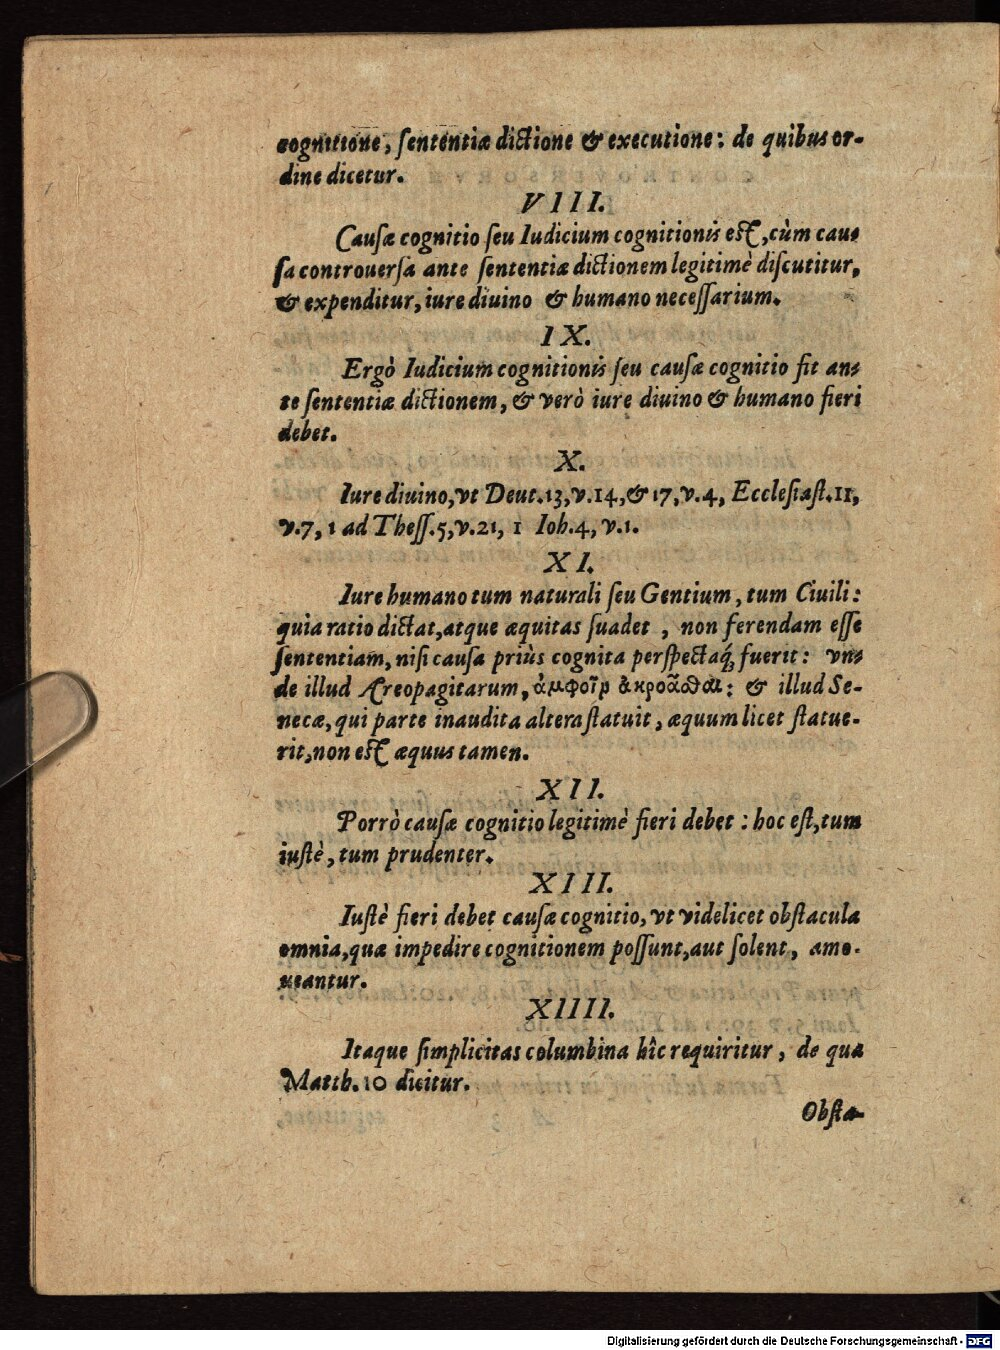 cognitione, ſententiæ dictione & executione: de quibus or-
dine dicetur.
VIII.
Cauſæ cognitio ſeu Iudicium cognitionis eſt, cùm cau-
ſa controuerſa ante ſententiæ dictionem legitimè diſcutitur,
& expenditur, iure diuino & humano neceſſarium.
IX.
Ergò Iudicium cognitionis ſeu cauſæ cognitio fit an-
te ſententiæ dictionem, & verò iure diuino & humano fieri
debet.
X.
Iure diuino, vt Deut. 13, v. 14, & 17, v. 4, Eccleſiaſt. 11,
v. 7, 1 ad Theſſ. 5, v. 21, 1 Ioh. 4, v. 1.
XI.
Iure humano tum naturali ſeu Gentium, tum Ciuili:
quia ratio dictat, atque æquitas ſuadet, non ferendam eſſe
ſententiam, niſi cauſa priùs cognita perſpectaq́; fuerit: vn-
de illud Areopagitarum, ἀμφοῖν ἀκροᾶσθαι: & illud Se-
necæ, qui parte inaudita altera ſtatuit, æquum licet ſtatue-
rit, non eſt æquus tamen.
XII.
Porrò cauſæ cognitio legitimè fieri debet: hoc eſt, tum
iuſtè, tum prudenter.
XIII.
Iuſtè fieri debet cauſæ cognitio, vt videlicet obſtacula
omnia, quæ impedire cognitionem poſſunt, aut ſolent, amo-
ueantur.
XIIII.
Itaque ſimplicitas columbina hîc requiritur, de qua
Matth. 10 dicitur.
Obſta-
Digitalisierung gefördert durch die Deutsche Forschungsgemeinschaft - DFG